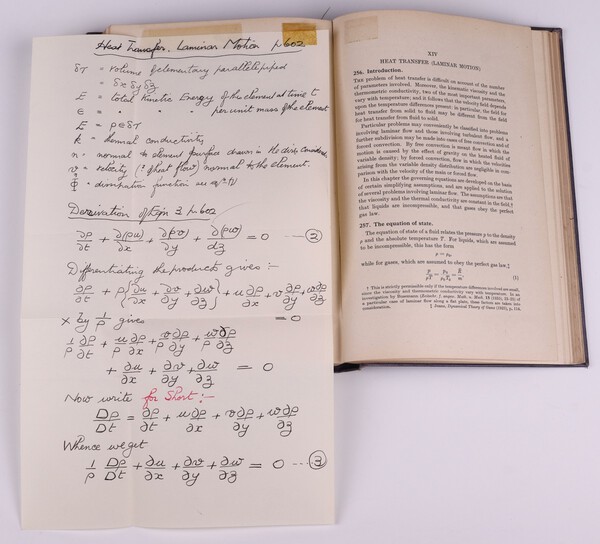 Heat Transfer. Laminar Motion p602
δτ = volume of elementary parallelepiped
= δx δy δz
E = total Kinetic Energy of the element at time t
e = " " " " per unit mass of the element
E = ρeδτ
k = thermal conductivity
n = normal to element surface drawn in the direction
v = velocity (? of heat flow) normal to the element.
Φ = dissipation function see eqn
Derivation of Eqn 3 p602
∂ρ/∂t + ∂(ρu)/∂x + ∂(ρv)/∂y + ∂(ρw)/∂z = 0 --- (2)
Differentiating the products gives :-
∂ρ/∂t + ρ{∂u/∂x + ∂v/∂y + ∂w/∂z} + u∂ρ/∂x + v∂ρ/∂y + w∂ρ/∂z
= 0
× by 1/ρ gives
1/ρ ∂ρ/∂t + u/ρ ∂ρ/∂x + v/ρ ∂ρ/∂y + w/ρ ∂ρ/∂z
+ ∂u/∂x + ∂v/∂y + ∂w/∂z = 0
Now write for Short :-
Dρ/Dt = ∂ρ/∂t + u∂ρ/∂x + v∂ρ/∂y + w∂ρ/∂z
Whence we get
1/ρ Dρ/Dt + ∂u/∂x + ∂v/∂y + ∂w/∂z = 0 --- (3)
XIV
HEAT TRANSFER (LAMINAR MOTION)
256. Introduction.
THE problem of heat transfer is difficult on account of the number
of parameters involved. Moreover, the kinematic viscosity and the
thermometric conductivity, two of the most important parameters,
vary with temperature; and it follows that the velocity field depends
upon the temperature differences present; in particular, the field for
heat transfer from solid to fluid may be different from the field
for heat transfer from fluid to solid.
Particular problems may conveniently be classified into problems
involving laminar flow and those involving turbulent flow, and a
further subdivision may be made into cases of free convection and of
forced convection. By free convection is meant flow in which the
motion is caused by the effect of gravity on the heated fluid of
variable density; by forced convection, flow in which the velocities
arising from the variable density distribution are negligible in com-
parison with the velocity of the main or forced flow.
In this chapter the governing equations are developed on the basis
of certain simplifying assumptions, and are applied to the solution
of several problems involving laminar flow. The assumptions are that
the viscosity and the thermal conductivity are constant in the field,†
that liquids are incompressible, and that gases obey the perfect
gas law.
257. The equation of state.
The equation of state of a fluid relates the pressure p to the density
ρ and the absolute temperature T. For liquids, which are assumed
to be incompressible, this has the form
ρ = ρ₀,
while for gases, which are assumed to obey the perfect gas law,‡
p/ρT = p₀/ρ₀T₀ = R/m, (1)
† This is strictly permissible only if the temperature differences involved are small,
since the viscosity and thermometric conductivity vary with temperature. In an
a particular case of laminar flow along a flat plate, these factors are taken into
consideration.
‡ Jeans, Dynamical Theory of Gases (1925), p. 116.